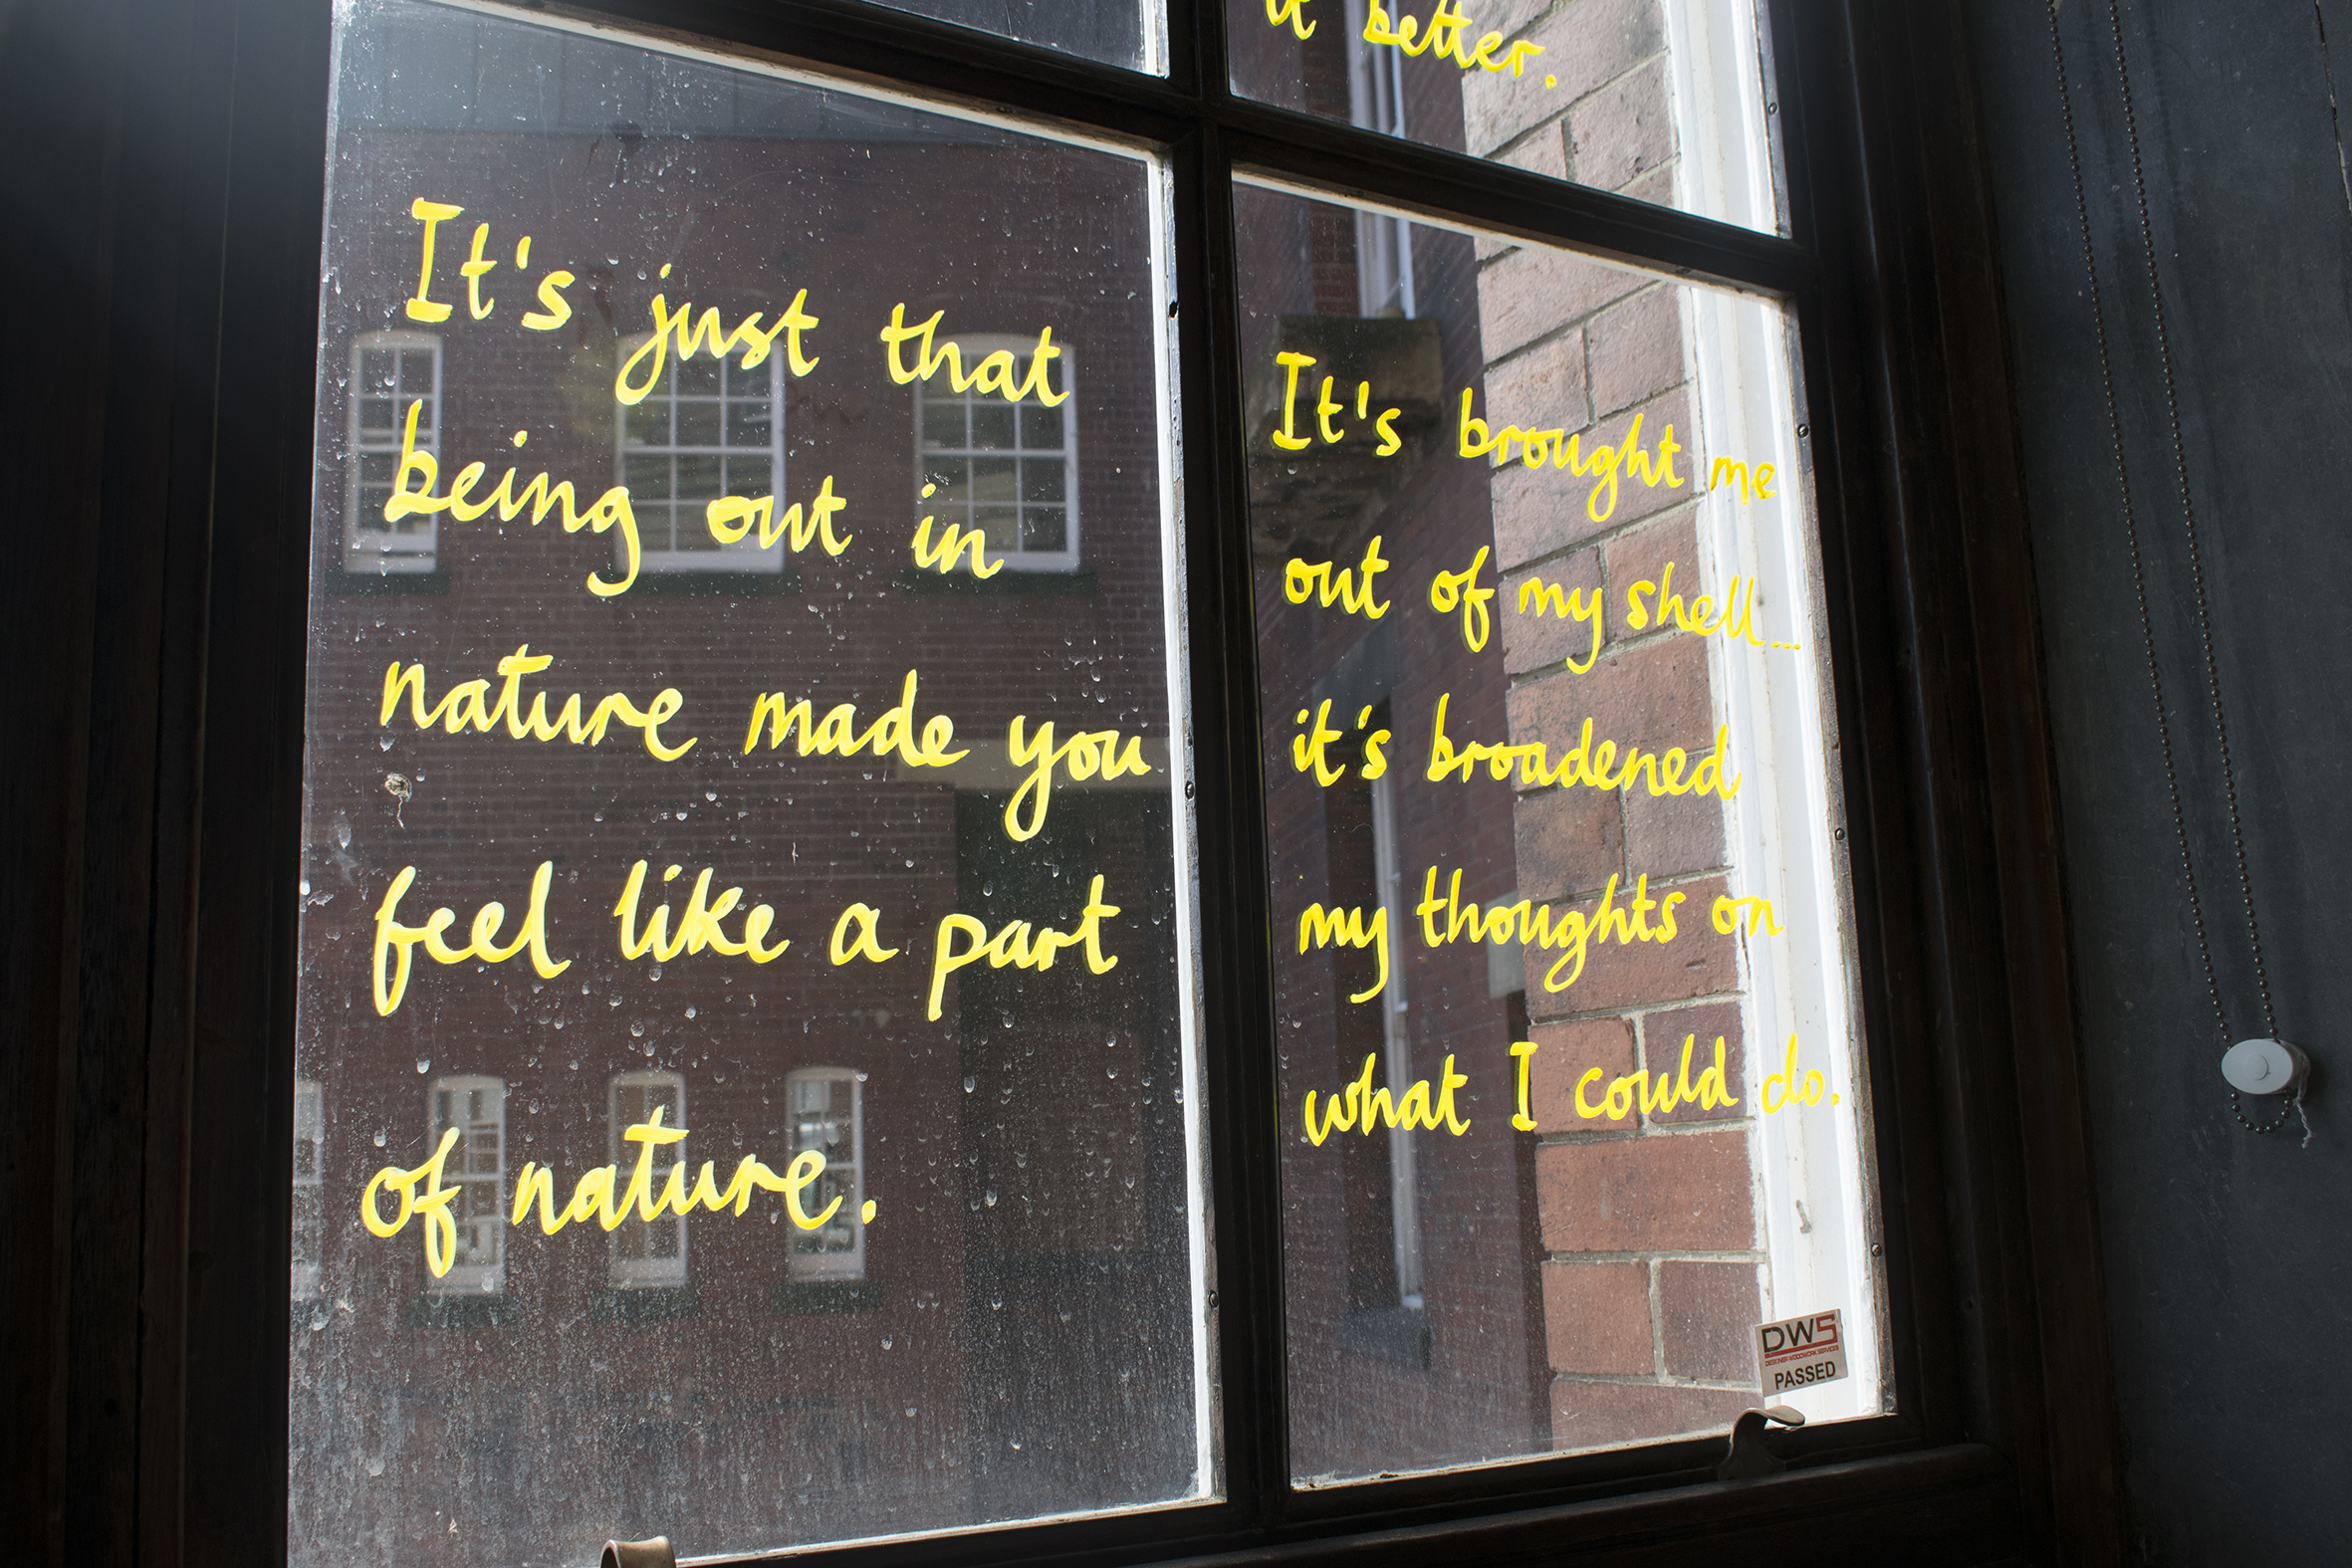 it better.
It's just that
being out in
nature made you
feel like a part
of nature.
It's brought me
out of my shell...
it's broadened
my thoughts on
what I could do.
DWS
DESIGNER WOODWORK SERVICES
PASSED